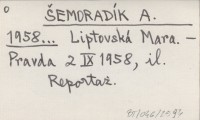 o
ŠEMORADÍK A.
1958... Liptovská Mara. –
Pravda 2 IX 1958, il.
Reportaž.